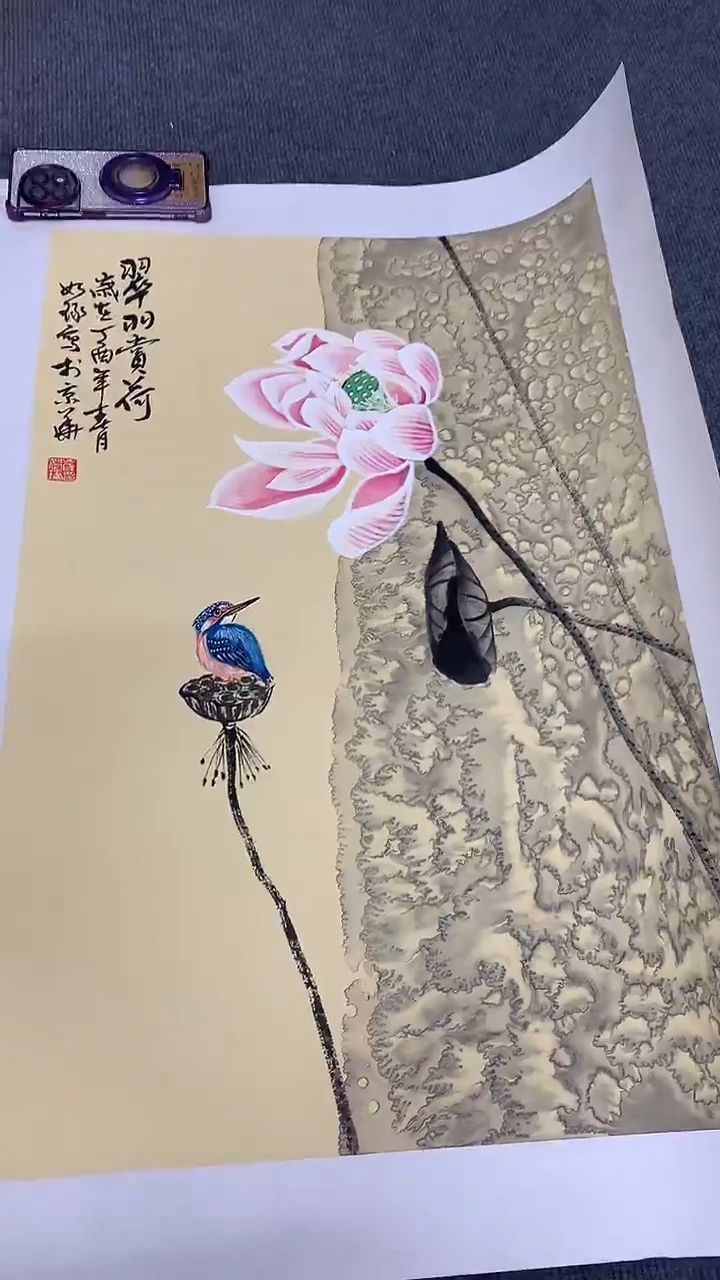 翠羽賞荷
歲在丁酉年春月
如琢寫於京華